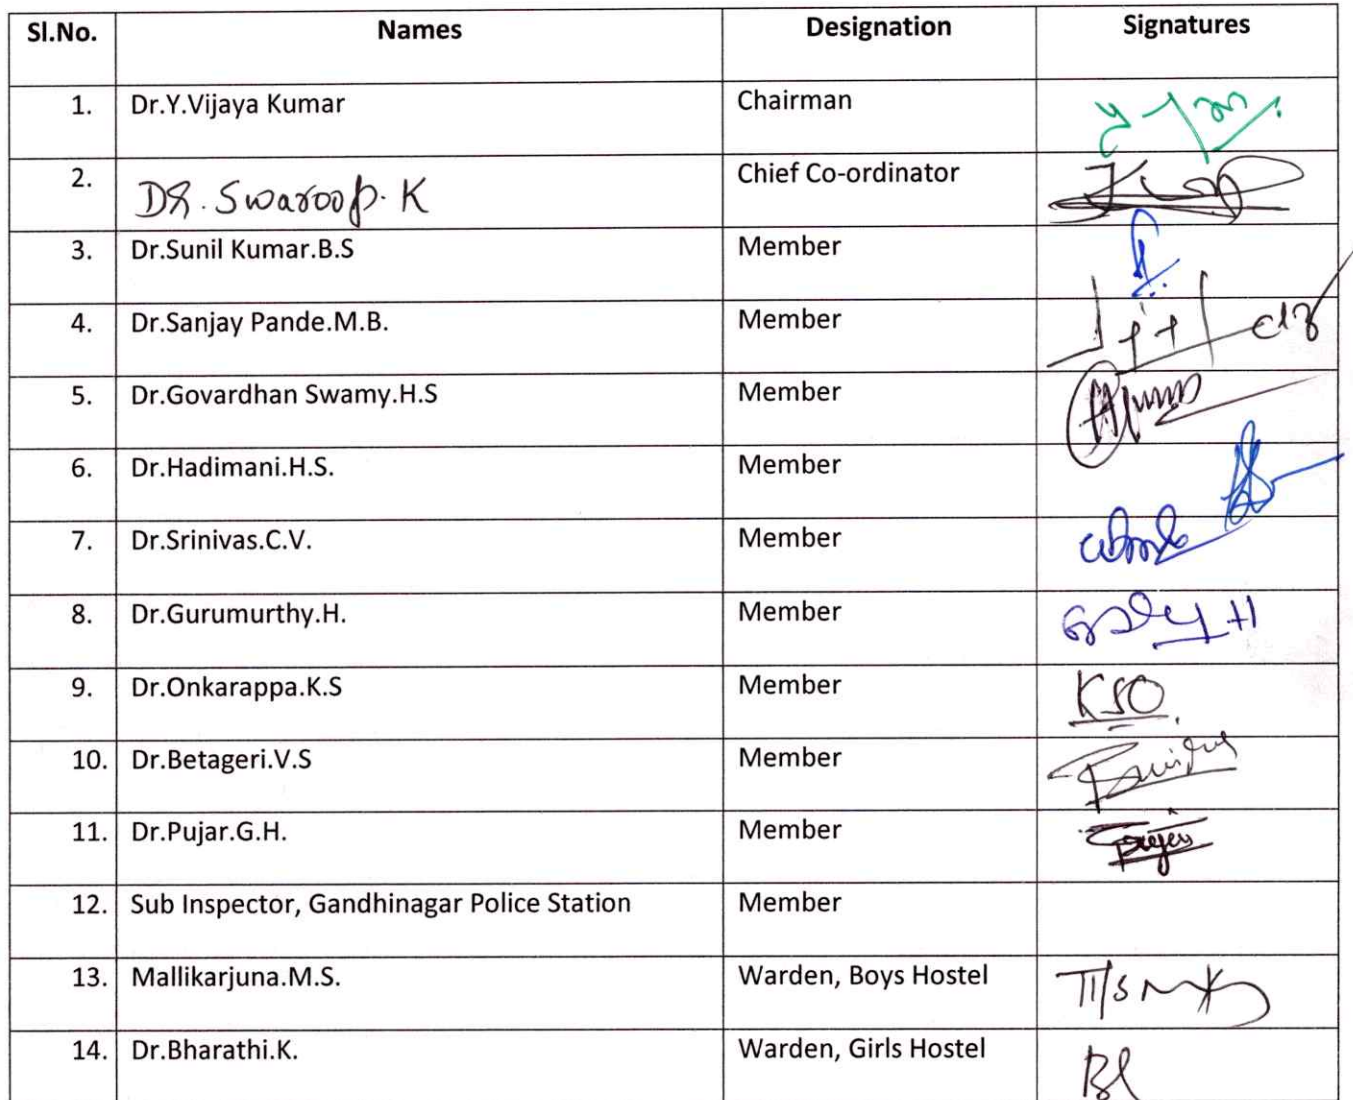 Sl.No. Names Designation Signatures
1. Dr.Y.Vijaya Kumar Chairman
2. Dr. Swaroop. K Chief Co-ordinator
3. Dr.Sunil Kumar.B.S Member
4. Dr.Sanjay Pande.M.B. Member
5. Dr.Govardhan Swamy.H.S Member
6. Dr.Hadimani.H.S. Member
7. Dr.Srinivas.C.V. Member
8. Dr.Gurumurthy.H. Member
9. Dr.Onkarappa.K.S Member KSO
10. Dr.Betageri.V.S Member
11. Dr.Pujar.G.H. Member
12. Sub Inspector, Gandhinagar Police Station Member
13. Mallikarjuna.M.S. Warden, Boys Hostel
14. Dr.Bharathi.K. Warden, Girls Hostel